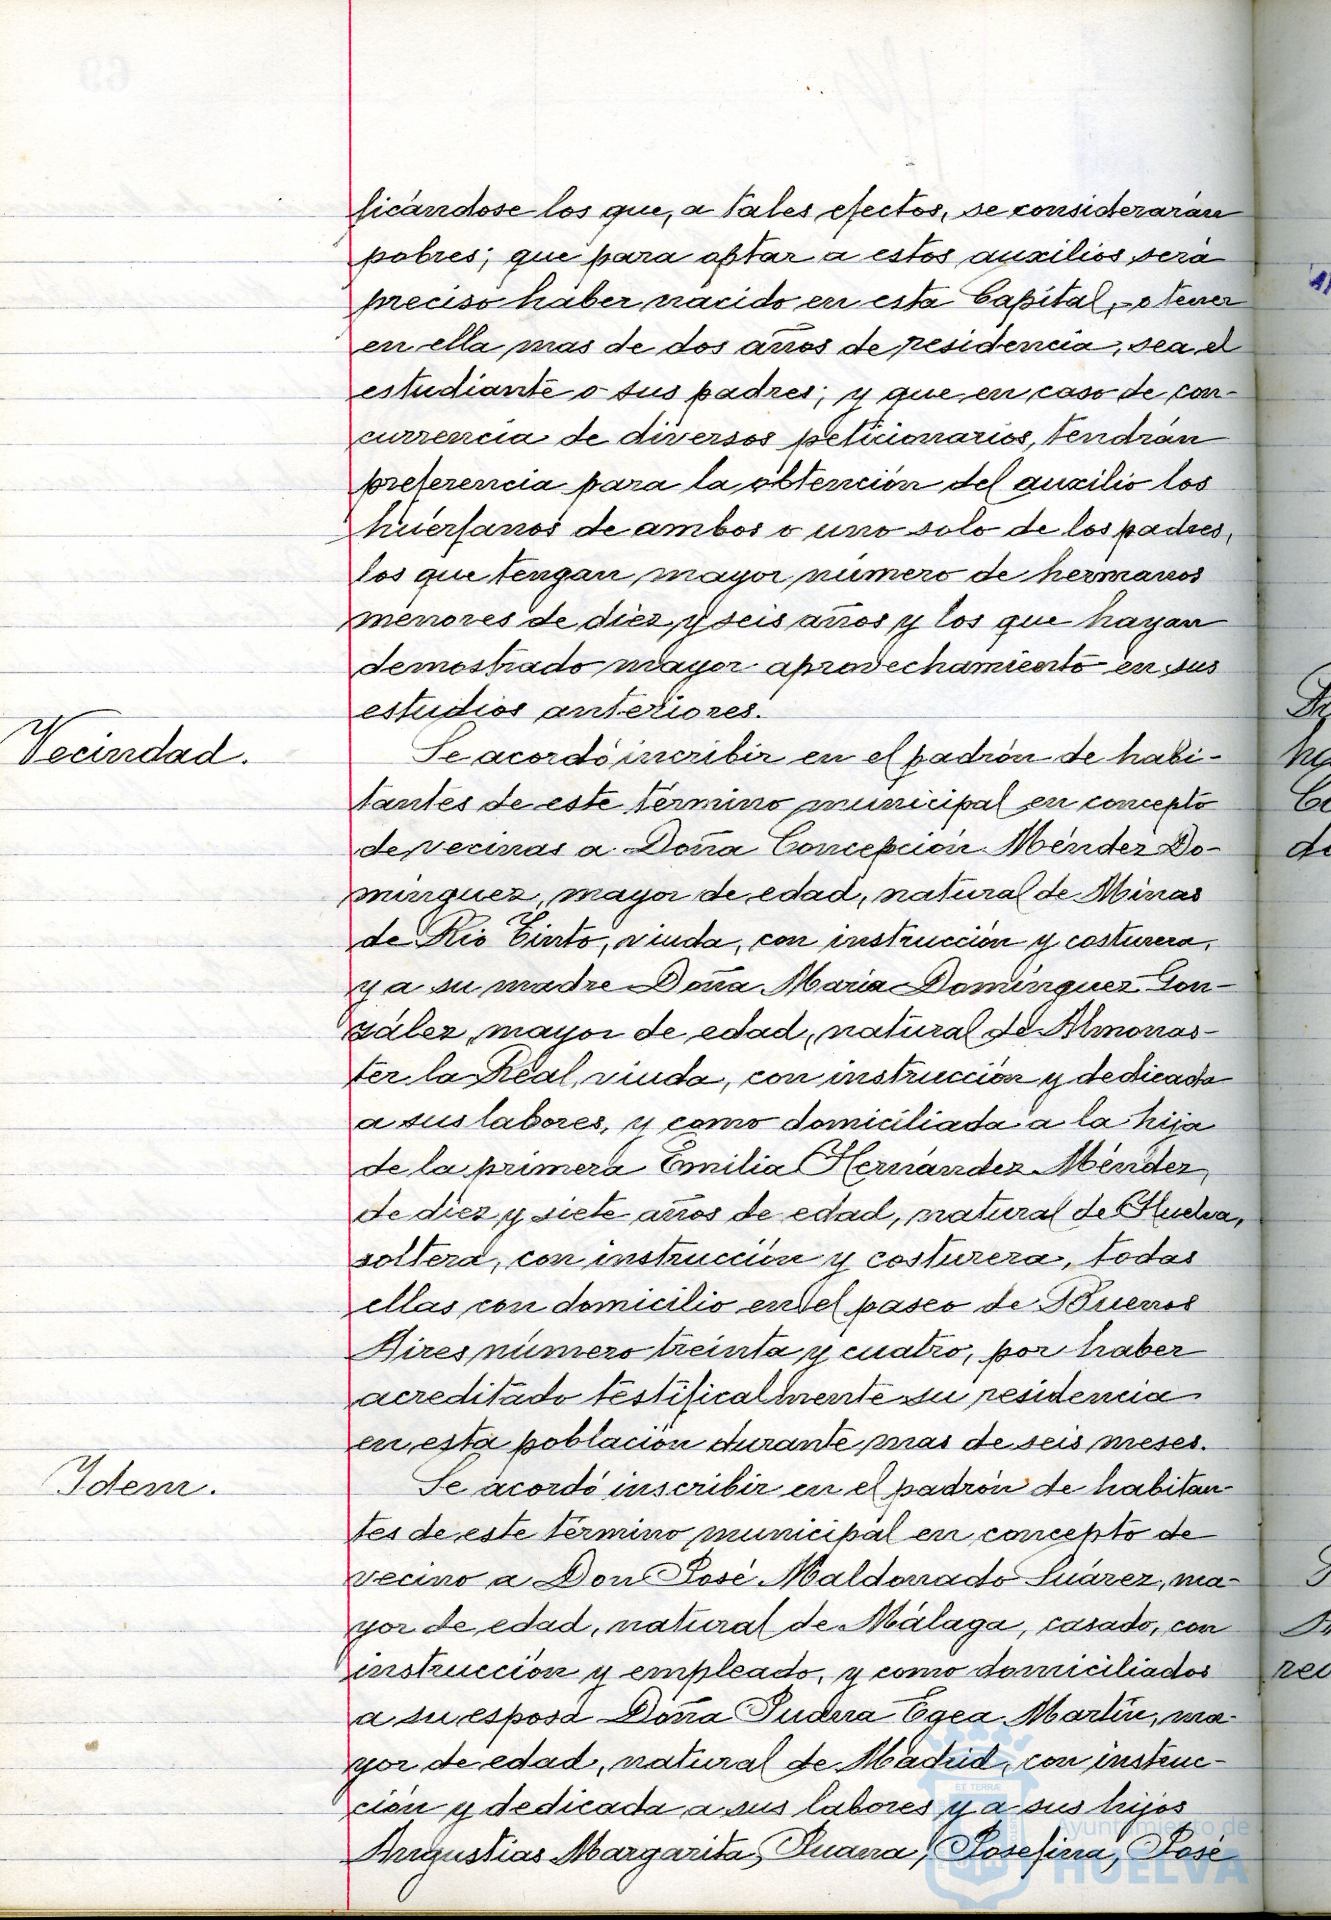 ficándose los que, a tales efectos, se considerarán
pobres; que para optar a estos auxilios será
preciso haber nacido en esta Capital, o tener
en ella mas de dos años de residencia, sea el
estudiante o sus padres; y que en caso de con-
currencia de diversos peticionarios, tendrán
preferencia para la obtención del auxilio los
huérfanos de ambos o uno solo de los padres,
los que tengan mayor número de hermanos
menores de diez y seis años y los que hayan
demostrado mayor aprovechamiento en sus
estudios anteriores.
Vecindad.
Se acordó incribir en el padrón de habi-
tantes de este término municipal en concepto
de vecinas a Doña Concepción Méndez Do-
minguez, mayor de edad, natural de Minas
de Rio Tinto, viuda, con instrucción y costurera,
y a su madre Doña María Domínguez Gon-
zález, mayor de edad, natural de Almonas-
ter la Real, viuda, con instrucción y dedicada
a sus labores, y como domiciliada a la hija
de la primera Emilia Hernández Méndez,
de diez y siete años de edad, natural de Huelva,
soltera, con instrucción y costurera, todas
ellas con domicilio en el paseo de Buenos
Aires número treinta y cuatro, por haber
acreditado testificalmente su residencia
en esta población durante mas de seis meses.
Idem.
Se acordó inscribir en el padrón de habitan-
tes de este término municipal en concepto de
vecino a Don José Maldonado Suárez, ma-
yor de edad, natural de Málaga, casado, con
instrucción y empleado, y como domiciliados
a su esposa Doña Juana Egea Martín, ma-
yor de edad, natural de Madrid, con instruc-
ción y dedicada a sus labores y a sus hijos
Angustias Margarita, Juana, Josefina, José
ET TERRÆ
Ayuntamiento de
HUELVA